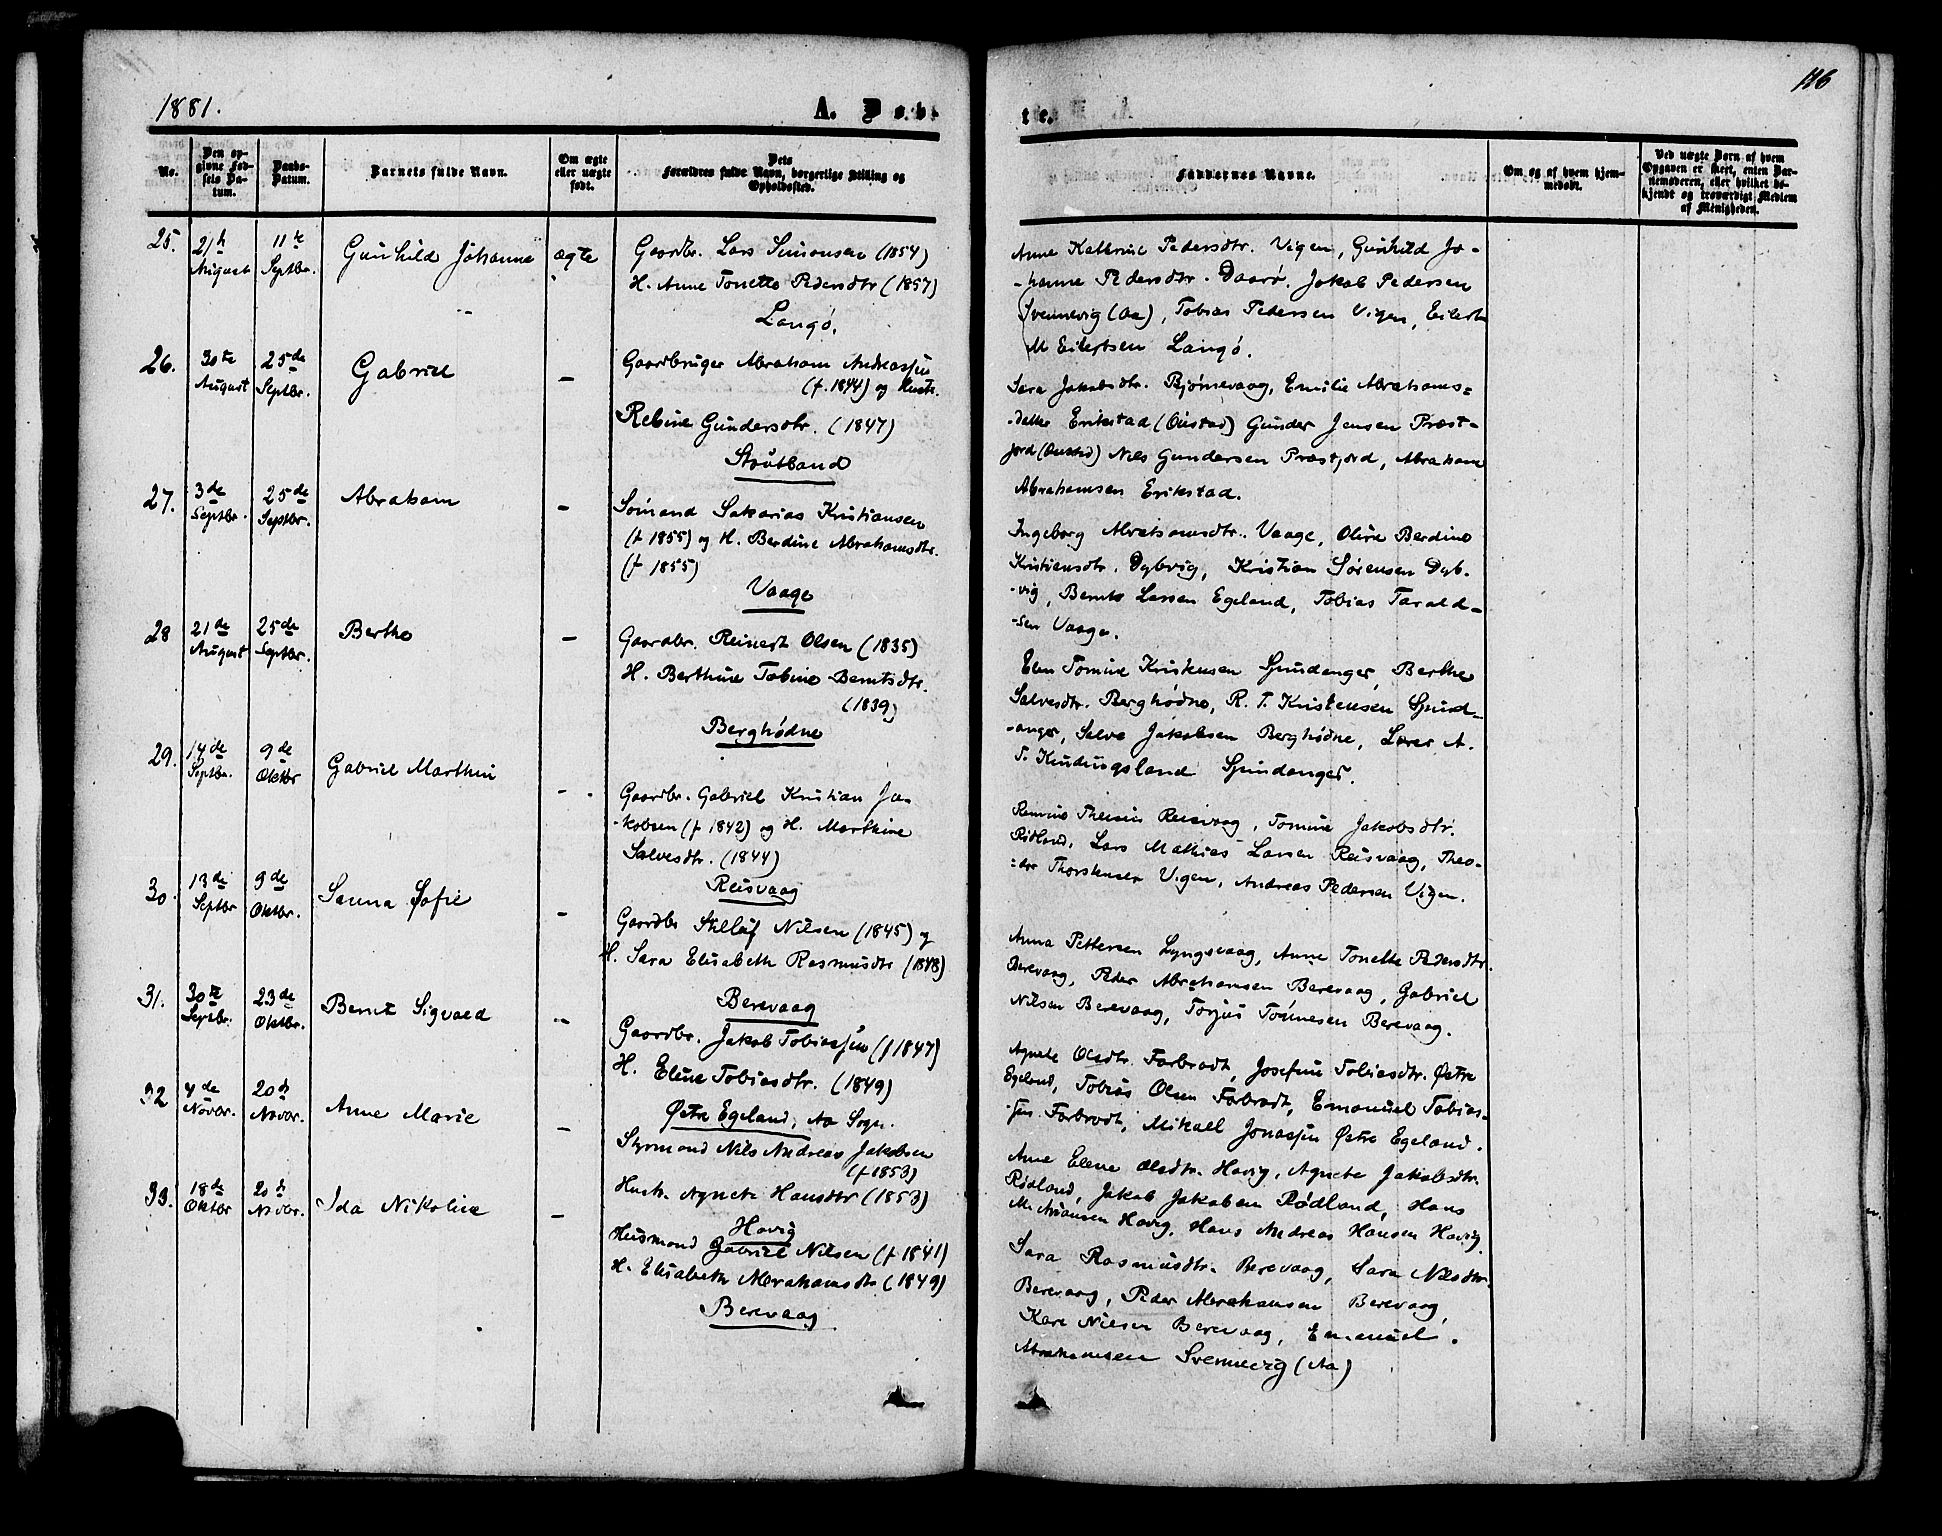 1881.
A. Døb-
te.
116
No.
Den op-
givne Fød-
sels Da-
tum.
Daabs-
Datum.
Barnets fulde Navn.
Om ægte
eller uægte
født.
Dets
Forældres fulde Navn, borgerlige Stilling og
Opholdssted.
Faddernes Navne.
Om og af hvem hjem-
medøbt.
Ved uægte Børn af hvem
Opgaven er skeet, enten Bar-
nemoderen, eller hvilket be-
kjendt og troværdigt Medlem
af Menigheden.
25. 21de August 11te Septbr. Gunhild Johanne ægte
Gaardbr. Lars Simonsen (1854)
H. Anne Tonette Pedersdtr (1857)
Langø.
Anne Kathrine Pedersdtr. Vigen, Gunhild Jo-
-hanne Pedersdtr. Daarø. Jakob Pedersen
Svennevig (Aa), Tobias Pedersen Vigen, Eilert
M Eilertsen Langø.
26. 30te August 25de Septbr. Gabriel –
Gaardbruger Abraham Andreassen
(f. 1844) og Hustr.
Rebine Gundersdtr. (1847)
Stoutland
Sara Jakobsdtr. Bjørnevaag, Emilie Abrahams-
-datter Erikstad (Oustad) Gunder Jensen Præst-
fjord (Oustad) Nils Gundersen Præstfjord, Abraham
Abrahamsen Erikstad.
27. 3de Septbr. 25de Septbr. Abraham –
Sømand Sakarias Kristiansen
(f 1855) og H. Berdine Abrahamsdtr.
(f 1855)
Vaage
Ingeborg Abrahamsdtr. Vaage, Oline Berdine
Kristiansdtr. Dybvig, Kristian Sørensen Dyb-
-vig, Bernt Larsen Egeland, Tobias Tarald-
-sen Vaage.
28 21de August 25de Septbr. Berthe –
Gaardbr. Reinert Olsen (1835)
H. Berthine Tobine Berntsdtr.
(1839)
Berghødne
Elen Tomine Kristensen Spindanger, Berthe
Salvesdtr. Berghødne, R. T. Kristensen Spind-
-anger, Salve Jakobsen Berghødne, Lærer A.
T. Kindingsland Spindanger.
29. 14de Septbr. 9de Oktbr Gabriel Marthin –
Gaardbr. Gabriel Kristian Ja-
-kobsen (f 1842) og H. Marthine
Salvesdtr. (1844)
Reisvaag
Reisvaag, Tomine Jakobsdtr.
Rødland, Lars Mathias Larsen Reisvaag, Theo-
-dor Thorstensen Vigen, Andreas Pedersen Vigen.
30. 13de Septbr 9de Oktbr. Sanna Sofie –
Gaardbr Stilluf Nilsen (1845) og
H. Sara Elisabeth Rasmusdtr (1848)
Berevaag
Anna Pettersen Lyngsvaag, Anne Tonette Pedersdtr.
Berevaag, Peder Abrahamsen Berevaag, Gabriel
Nilsen Berevaag, Torjus Tønnesen Berevaag.
31. 30te Septbr. 23de Oktbr. Bernt Sigvald –
Gaardbr. Jakob Tobiassen (f 1847)
H. Eline Tobiasdtr. (1849)
Østre Egeland, Aa Sogn.
Agnete Olsdtr. Farbrodt, Josefine Tobiasdtr. Østre
Egeland, Tobias Olsen Farbrodt, Emanuel Tobias-
-sen Farbrodt, Mikael Jonassen Østre Egeland.
32 4de Novbr. 20de Novbr. Anne Marie –
Styrmand Nils Andreas Jakobsen
(f 1853)
Hustr. Agnete Hansdtr (1853)
Havig
Anne Elene Olsdtr. Havig, Agnete Jakobsdtr.
Rødland, Jakob Jakobsen Rødland, Hans
Havig, Hans Andreas Hansen Havig.
33. 18de Oktbr 20de Novbr. Ida Nikoline –
Husmand Gabriel Nilsen (f 1841)
H. Elisabeth Abrahamsdtr (1849)
Berevaag
Sara Rasmusdtr. Berevaag, Sara Nilsdtr.
Berevaag, Peder Abrahamsen Berevaag,
Kare Nilsen Berevaag, Emanuel
Abrahamsen Svennevig (Aa)